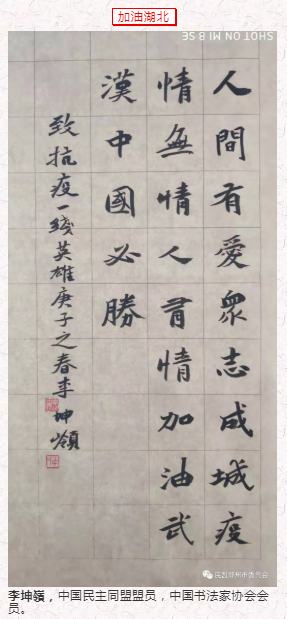 加油湖北
SHOT ON MI 8 SE
人間有愛衆志成城疫
情無情人有情加油武
漢中國必勝
致抗疫一綫英雄庚子之春李坤嶺
民盟郑州市委员会
李坤嶺，中国民主同盟盟员，中国书法家协会会
员。